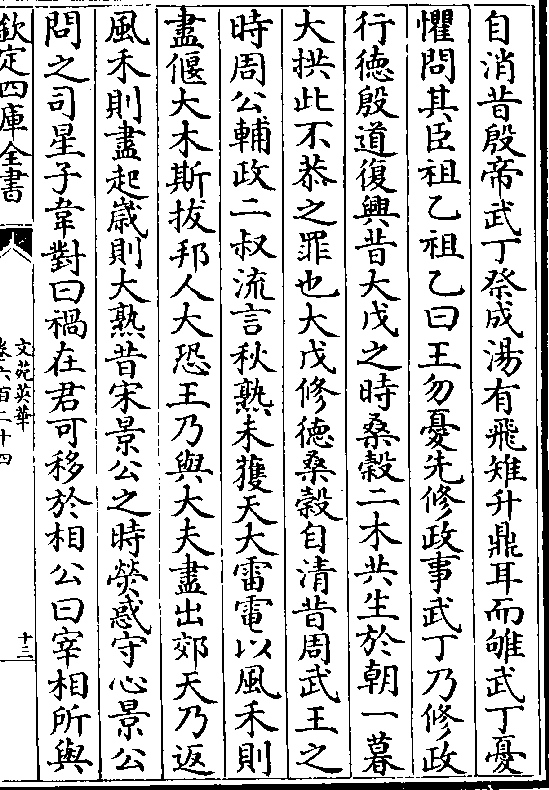 自消昔殷帝武丁祭成湯有飛雉升鼎耳而雊武丁憂
懼問其臣祖乙祖乙曰王勿憂先修政事武丁乃修政
行德殷道復興昔大戊之時桑榖二木共生於朝一暮
大拱此不恭之罪也大戊修德桑榖自清昔周武王之
時周公輔政二叔流言秋熟未獲天大雷電以風禾則
盡偃大木斯拔邦人大恐王乃與大夫盡出郊天乃返
風禾則盡起歲則大熟昔宋景公之時熒惑守心景公
問之司星子韋對曰禍在君可移於相公曰宰相所與
欽定四庫全書
文苑英華
卷六百二十四
十三